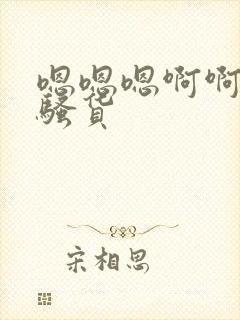 嗯嗯嗯啊啊
骚货
宋相思